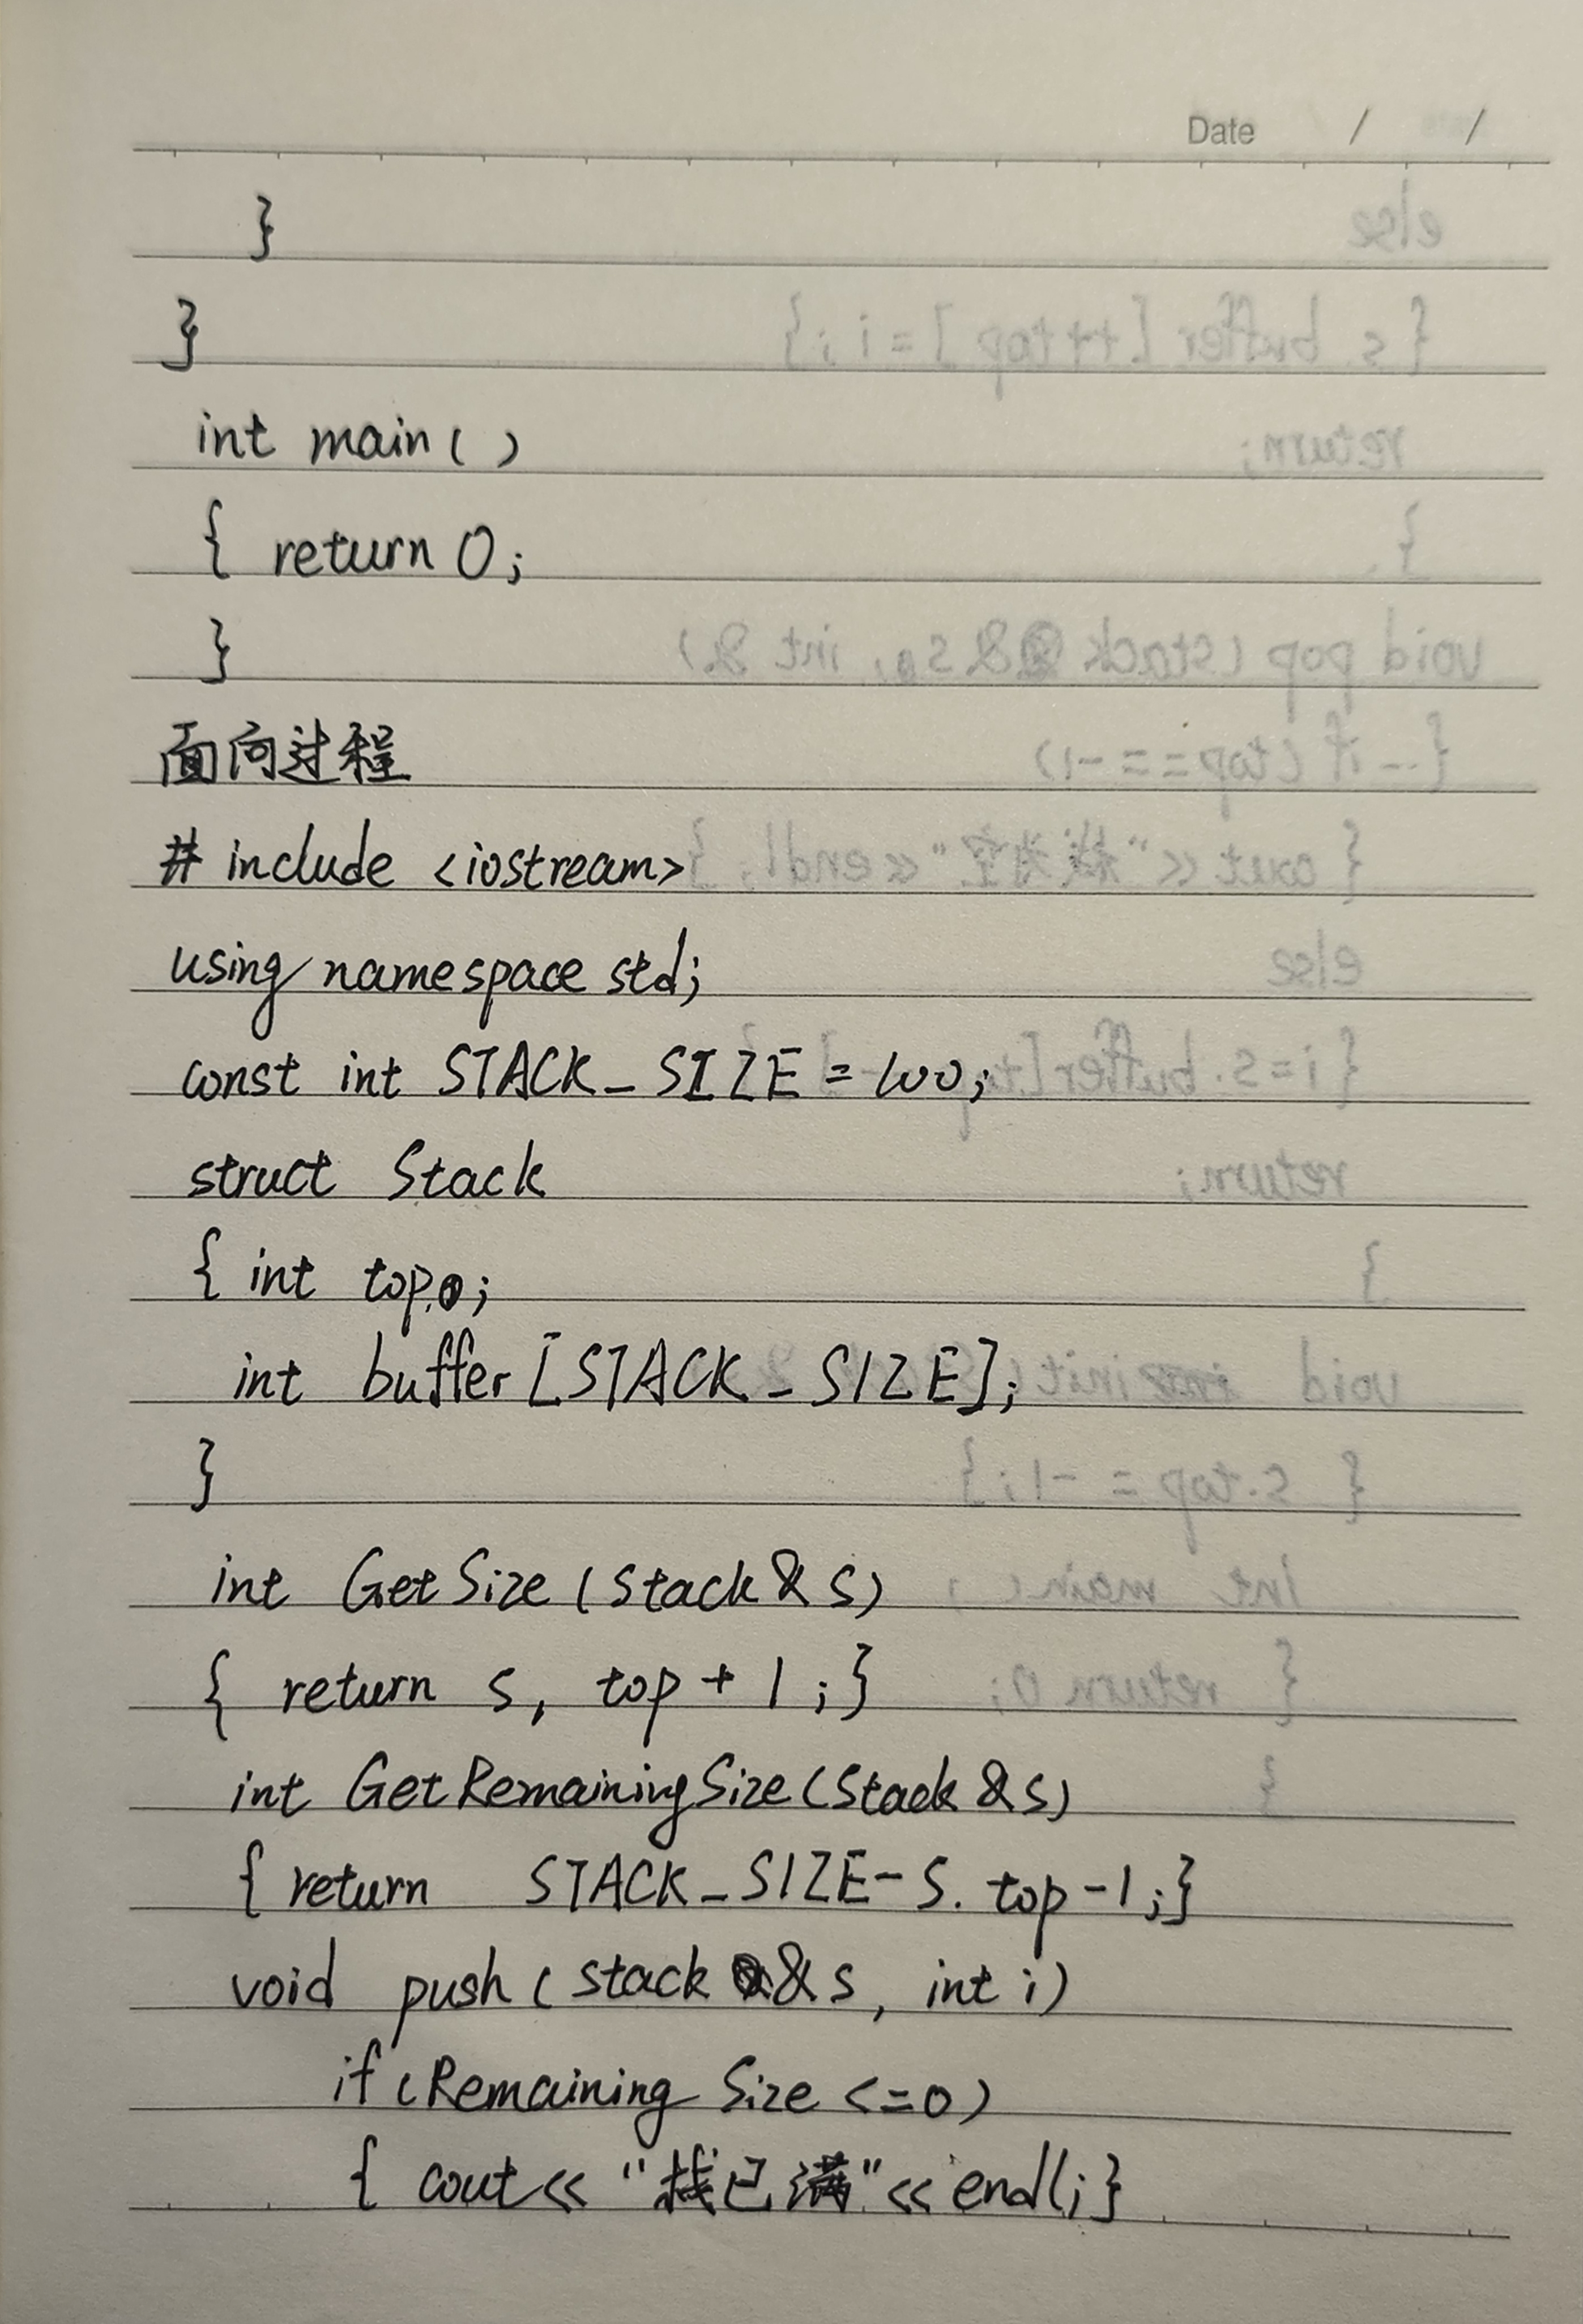 Date / /
}
}
int main()
{ return 0;
}
面向过程
# include <iostream>
using namespace std;
const int STACK_SIZE = 100;
struct Stack
{ int top;
int buffer[STACK_SIZE];
}
int GetSize (Stack & s)
{ return s, top + 1 ;}
int GetRemainingSize (Stack & s)
{ return STACK_SIZE - s. top - 1 ;}
void push ( stack & s , int i )
if (Remaining Size <= 0)
{ cout << "栈已满" << endl; }